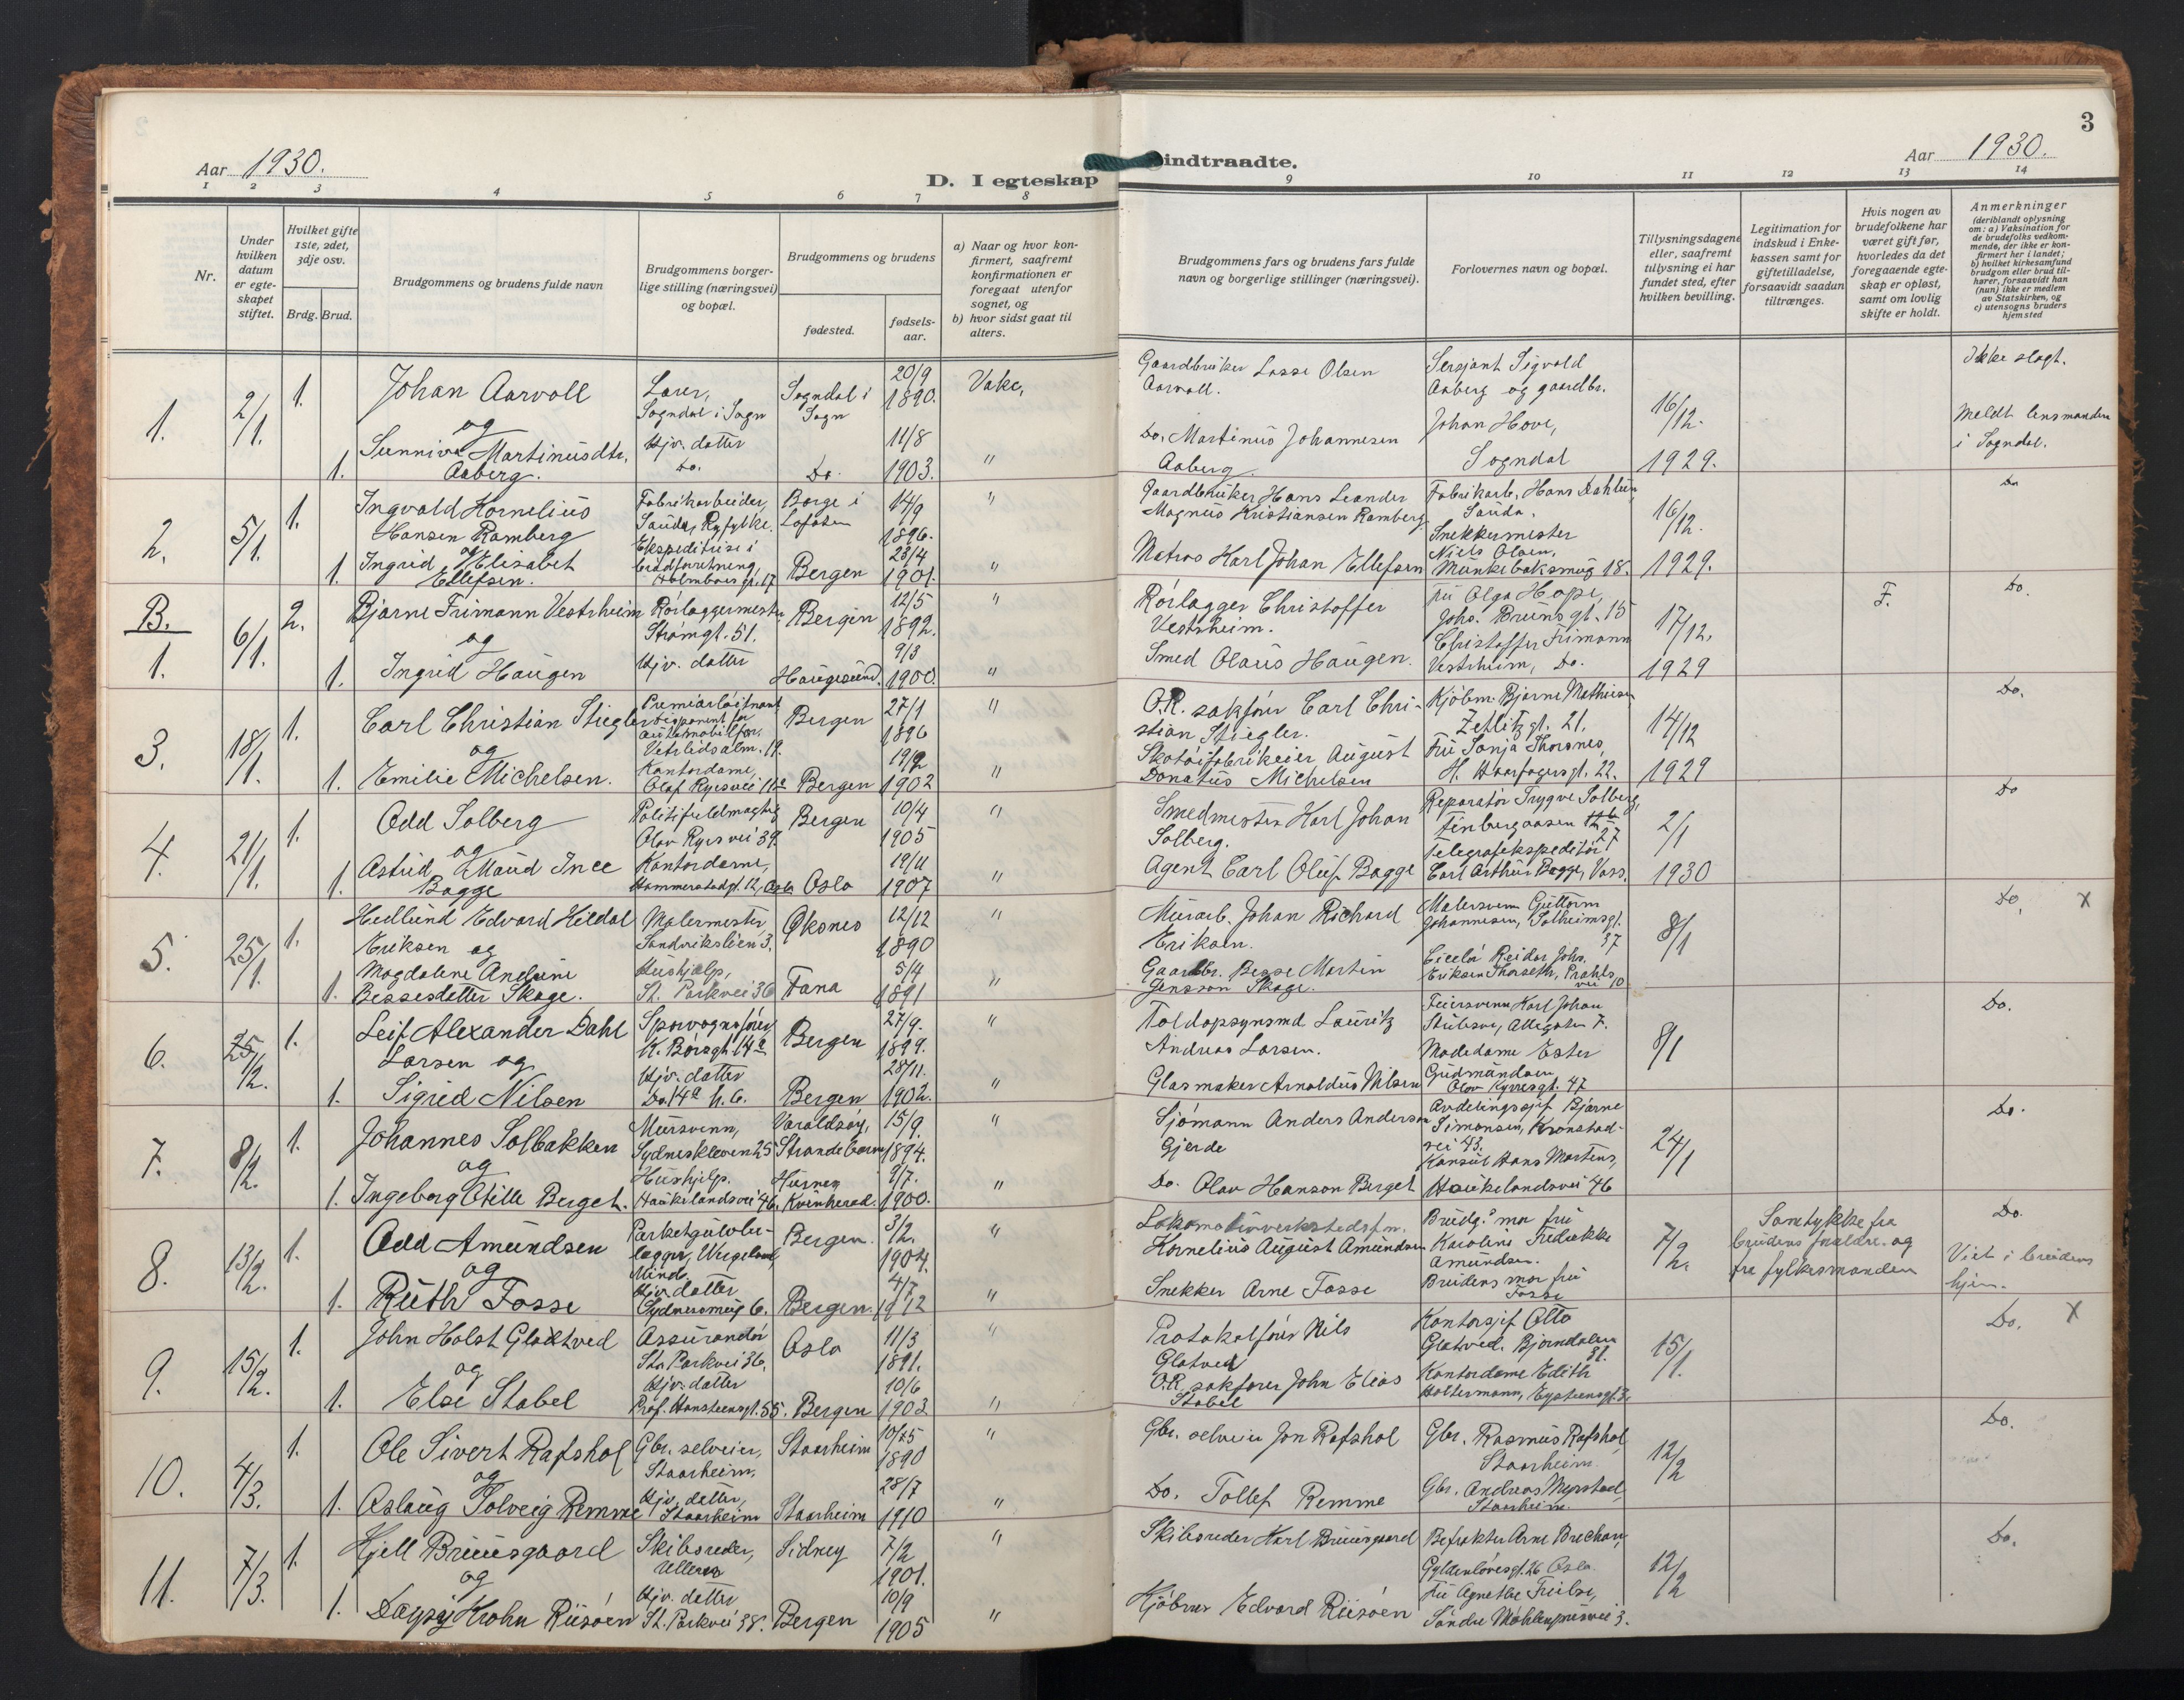 3
Aar 1930.
D. I egteskap indtraadte.
Aar 1930.
1 2 3 4 5 6 7 8 9 10 11 12 13 14
Nr.
Under hvilken datum er egteskapet stiftet.
Hvilket gifte 1ste, 2det, 3dje osv.
Brdg. Brud.
Brudgommens og brudens fulde navn
Brudgommens borgerlige stilling (næringsvei) og bopæl.
Brudgommens og brudens
fødested.
fødselsaar.
a) Naar og hvor konfirmert, saafremt konfirmationen er foregaat utenfor sognet, og
b) hvor sidst gaat til alters.
Brudgommens fars og brudens fars fulde navn og borgerlige stillinger (næringsvei).
Forlovernes navn og bopæl.
Tillysningsdagene eller, saafremt tillysning ei har fundet sted, efter hvilken bevilling.
Legitimation for indskud i Enkekassen samt for giftetilladelse, forsaavidt saadan tiltrænges.
Hvis nogen av brudefolkene har været gift før, hvorledes da det foregaaende egteskap er opløst, samt om lovlig skifte er holdt.
Anmerkninger
(deriblandt oplysning om: a) Vaksination for de brudefolks vedkommende, der ikke er konfirmert her i landet; b) hvilket kirkesamfund brudgom eller brud tilhører, forsaavidt han (hun) ikke er medlem av Statskirken, og c) utensogns bruders hjemsted
1. 2/1. 1. Johan Aarvoll Lærer, Sogndal i Sogn Sogndal i Sogn 20/9 1890. Vake, Gaardbruker Lasse Olsen Aarvoll. Sersjant Sigvald Aaberg og gaardbr. Johan Hove, Sogndal 16/12. 1929. Ikke slegt. Meldt lensmanden i Sogndal.
og
1. Sunniva Martinusdtr. Aaberg. Hjv. datter Do. Do. 11/8 1903. " Do. Martinus Johannesen Aaberg
2. 5/1. 1. Ingvald Kornelius Hansen Ramberg Fabrikarbeider, Sauda, Ryfylke. Borge i Lofoten 14/9 1896. " Gaardbruker Hans Leander Magnus Kristiansen Ramberg Fabrikarb. Hans Dahlein, Sauda. Snekkermester Niels Olsen, Munkebaksmug 18. 16/12. 1929. Do
og
1. Ingrid Elisabet Ellefsen. Ekspeditrise i brødforretning, Holmboes gt. 17 Bergen 23/4 1901. " Matros Karl Johan Ellefsen
B. 1. 6/1. 2. Bjarne Frimann Vestrheim Rørlæggermester Strømgt. 51. Bergen 12/5 1892. " Rørlægger Christoffer Vestrheim. Fru Olga Hope, Johs. Bruns gt. 15 Christoffer Frimann Vestrheim, Do. 17/12. 1929 F. Do.
og
1. Ingrid Haugen Hjv. datter Haugesund. 9/3 1900. " Smed Olaus Haugen.
3. 18/1. 1. Carl Christian Stiegler Premiærløitnant disponent for automobilfor. Vetrlidsalm. 19. Bergen 27/1 1896 " O.R. sakfører Carl Christian Stiegler. Kjøbm. Bjarne Mathiesen Zetlitzgt. 21. Fru Sonja Thorsnes, H. Haarfagersgt. 22. 14/12 1929 Do.
og
1. Emilie Michelsen. Kontordame, Olaf Ryesvei 11a Bergen 19/2 1902 " Skotøifabrikeier August Donatus Michelsen
4. 21/1. 1. Odd Solberg Politifuldmægtig Olav Ryes vei 39. Bergen 10/4 1905 " Smedmester Karl Johan Solberg. Reparatør Trygve Solberg, Finbergaasen 27 Telegrafekspeditør Carl Arthur Bagge, Voss. 2/1 1930 Do
og
1. Astrid Maud Inee Bagge Kontordame, Hammerstadgt. 12, Oslo Oslo 19/11 1907 " Agent Carl Oluf Bagge
5. 25/1. 1. Hedlund Edvard Hildal Eriksen og Malermester, Sandvikslien 3. Øksnes 12/12 1890 " Murarb. Johan Richard Eriksen. Malersvenn Guttorm Johannesen, Solheimsgt. 37 Ciselør Reidar Johs. Eriksen Thorseth, Prahls vei 10 8/1 Do. X
1. Magdalene Andrine Bessesdatter Skage. Hushjælp, St. Parkvei 36 Fana 5/4 1891 " Gaardbr. Besse Martin Jensson Skage.
6. 25/1 /2. 1. Leif Alexander Dahl Larsen og Sporvognsfører, K. Børsgt. 14a Bergen 27/9. 1899. " Toldopsynsmd Lauritz Andreas Larsen. Feiersvenn Karl Johan Stubseve, Allegaten 7. Modedame Ester Gudmundsen Olav Kyrresgt. 47 8/1 Do.
1. Sigrid Nilsen Hjv. datter Do. 14a h.b. Bergen 28/11. 1902. " Glasmaker Arnoldus Nilsen
7. 8/2. 1. Johannes Solbakken Mursvenn, Sydneskleven 25 Varaldsøy, Strandebarm 15/9. 1894. " Sjømann Anders Anderson Gjerde Avdelingssjef Bjarne Simonsen, Kronstadvei 43. Konsul Hans Martens, Haukelandsvei 46 24/1 Do.
og
1. Ingeborg Otilie Berget. Hushjelp. Haukelandsvei 46. Husnes Kvinherad. 9/7. 1900. " Do. Olav Hanson Berget
8. 13/2. 1. Odd Amundsen Parketgulvlægger, Wergeland, Minde. Bergen. 3/2. 1904. " Lokomotivverkstedsfm. Kornelius August Amundsen Brudg.s mor fru Karoline Fredrikke Amundsen. Brudens mor fru Fosse 7/2. Samtykke fra brudens forældre og fra fylkesmanden Do. Viet i brudens hjem.
og
1. Ruth Fosse Hjv. datter Sydnessmug 6. Bergen. 4/7 1912 " Snekker Arne Fosse
9. 15/2. 1. John Holst Glattved Assurandør St. Parkvei 36. Oslo 11/3 1891. " Protokolfører Nils Glatved Kontorsjef Otto Glatved. Bjørndalen 31. Kontordame Edith Holtermann, Eystensgt. 3. 15/1. Do. X
og
1. Else Stabel Hjv. datter Prof. Hansteensgt. 55. Bergen 10/6 1903 " O.R. sakfører John Elias Stabel
10. 4/3. 1. Ole Sivert Rafshol Gbr. selveier, Staarheim. Staarheim 10/25 1890 " Gbr. selveier Jon Rafshol Gbr. Rasmus Rafshol Staarheim. Gbr. Andreas Myrstad, Staarheim. 12/2 Do.
og
1. Aslaug Solveig Remme Hjv. datter, Staarheim Staarheim 28/7 1910 " Do. Tollef Remme
11. 7/3. 1. Kjell Bruusgaard Skibsreder, Ullern Sidney 7/2 1901. " Skibsreder Karl Bruusgaard Befrakter Arne Brechan, Gyldenløvesgt. 26 Oslo. Fru Agnethe Freilse, Søndre Møhlenprisvei 3. 12/2 Do.
og
1. Daysy Krohn Riisøen Hjv. datter St. Parkvei 38. Bergen 10/9 1905 " Kjøbm. Edvard Riisøen